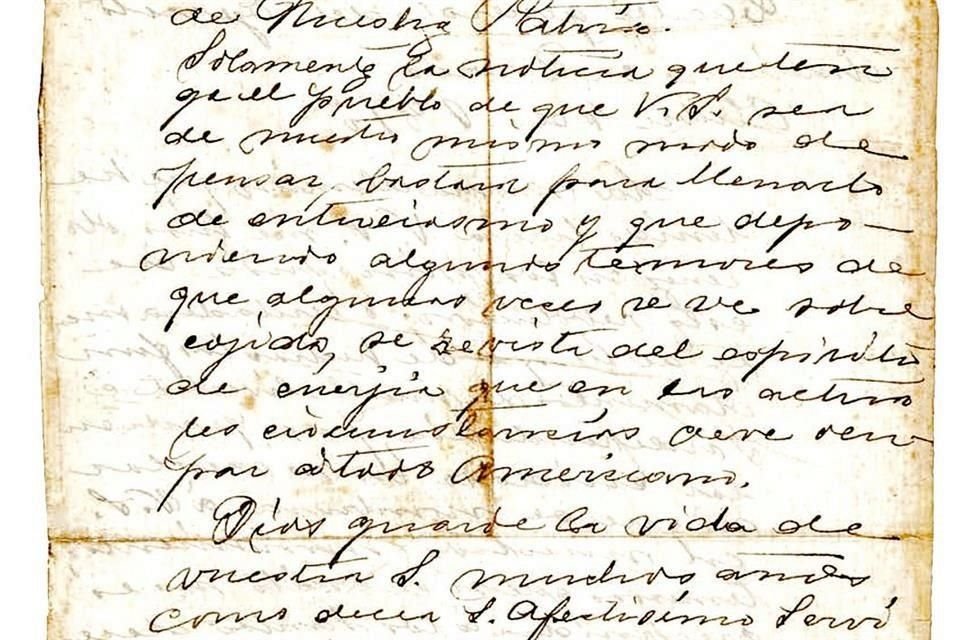 de Nuestra Patria.
Solamente la noticia que ten
ga el pueblo de que V.S. sea
de nuestro mismo modo de
pensar, bastara para llenarlo
de entuciasmo y que depo-
niendo algunos temores de
que algunas veces se ve sobre
cojido, se revista del espiritu
de enerjia que en las actua
les circunstancias deve ocu
par á todo Americano.
Dios guarde la vida de
vuestra S. muchos años
como decea S. Afectisimo Servi